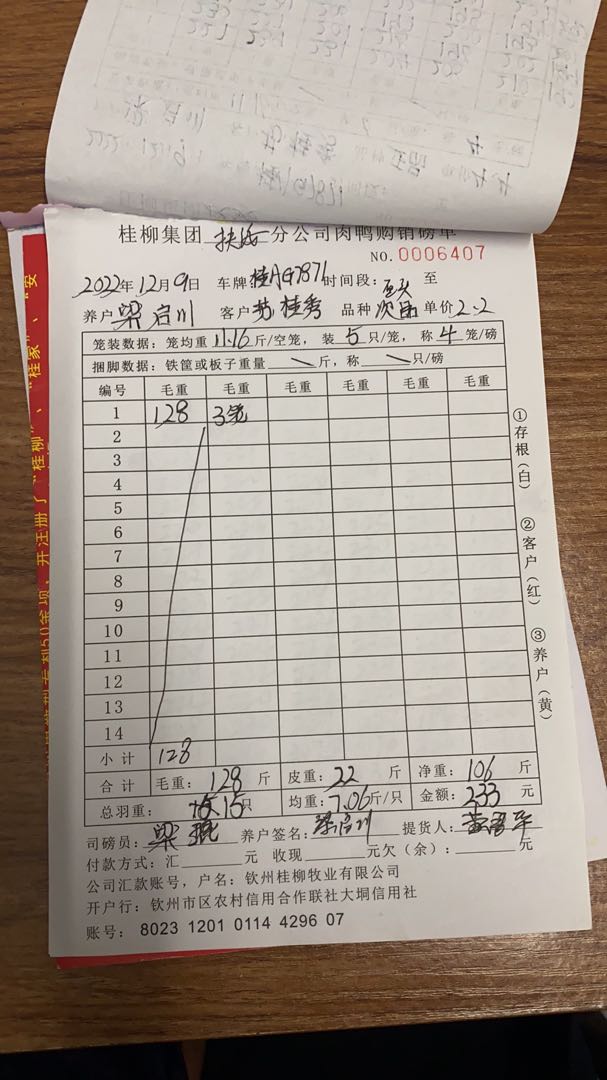 桂柳集团 分公司肉鸭购销磅单
NO.0006407
2022年12月9日 车牌 时间段: 至
养户 梁启川 客户 苏桂秀 品种 次品 单价2.2
笼装数据: 笼均重 11.16 斤/空笼, 装 5 只/笼, 称 4 笼/磅
捆脚数据: 铁筐或板子重量 斤, 称 只/磅
编号 毛重 毛重 毛重 毛重 毛重 毛重
1 128 3笼
2
3
4
5
6
7
8
9
10
11
12
13
14
小计 128
合计 毛重: 128 斤 皮重: 22 斤 净重: 106 斤
总羽重: 15 只 均重: 7.06 斤/只 金额: 233 元
司磅员: 养户签名: 提货人:
付款方式: 汇 元 收现 元欠(余): 元
公司汇款账号, 户名: 钦州桂柳牧业有限公司
开户行: 钦州市区农村信用合作联社大垌信用社
账号: 8023 1201 0114 4296 07
①存根(白)
②客户(红)
③养户(黄)